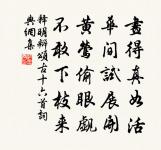 畫得真如活
華間試展開
黃鶯偷眼覷
不敢下枝來
釋明辯頌古十六首詞
典網集